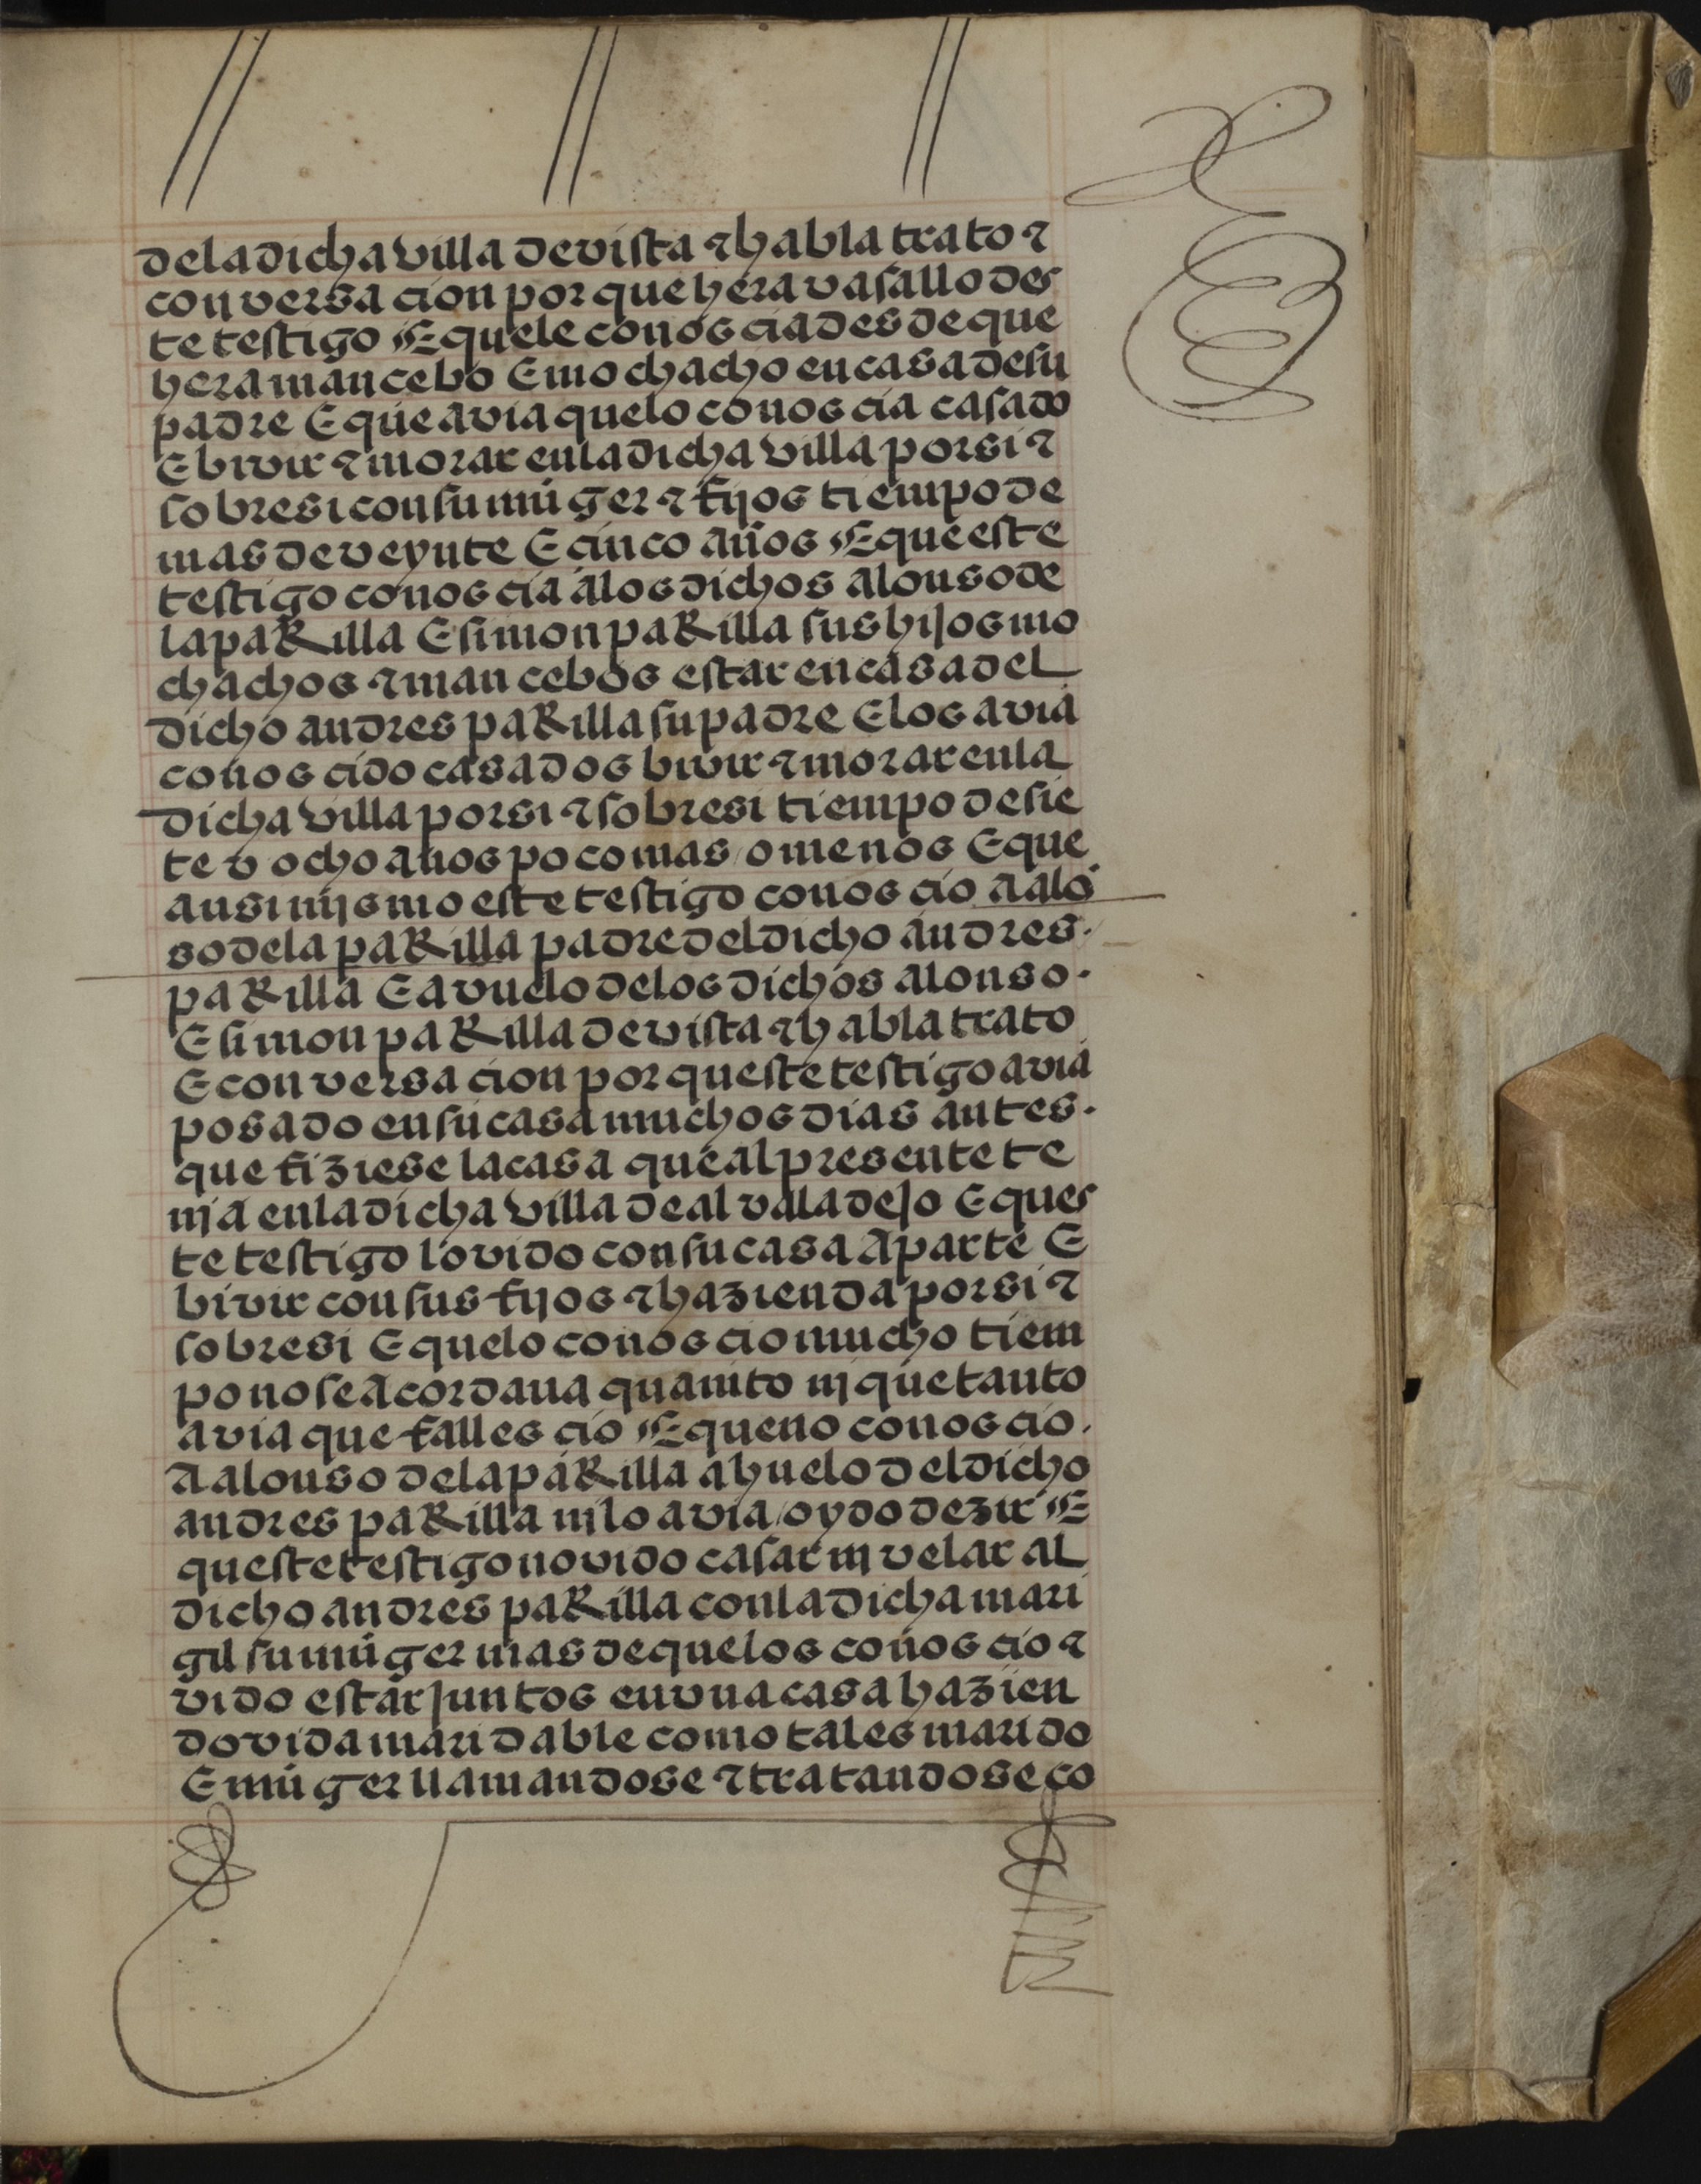 dela dicha villa de vista ⁊ habla trato ⁊
conversacion por que hera vasallo des
te testigo E quele conoscia desde que
hera mancebo E mochacho en casa de su
padre E que avia quelo conoscia casado
E bivir ⁊ morar enla dicha villa por si ⁊
sobre si con su muger ⁊ fijos tiempo de
mas de veynte E cinco años E que este
testigo conoscia alos dichos alonso de
la paRilla E simon paRilla sus hijos mo
chachos ⁊ mancebos estar en casa del
dicho andres paRilla su padre E los avia
conoscido casados bivir ⁊ morar enla
dicha villa por si ⁊ sobre si tiempo de sie
te v ocho años poco mas / o menos E que
ansi mismo este testigo conoscio a alo
so dela paRilla padre del dicho andres.
paRilla E avuelo delos dichos alonso.
E simon paRilla de vista ⁊ habla trato
E conversacion por queste testigo avia
posado en su casa muchos dias antes.
que fiziese la casa que al presente te
nia enla dicha villa de alvaladejo E ques
te testigo lo vido con su casa Aparte E
bivir con sus fijos ⁊ hazienda por si ⁊
sobre si E quelo conoscio mucho tiem
po no se Acordaua quanto ni que tanto
avia que fallescio E que no conoscio.
A alonso dela paRilla ahuelo del dicho
andres paRilla ni lo avia / oydo dezir E
queste testigo no vido casar ni velar al
dicho andres paRilla conla dicha mari
gil su muger mas de quelos conoscio ⁊
vido estar juntos en vna casa hazien
do vida maridable como tales marido
E muger llamandose ⁊ tratandose co